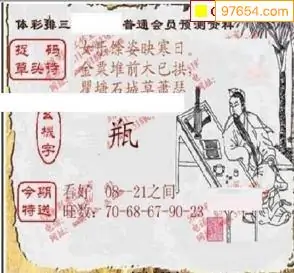 97654.com
体彩排三
普通会员预测资料
捉码
草头诗
女乐馀姿映寒日。
金粟堆前木已拱,
瞿塘石城草萧瑟
玄机字
瓶
今期
特送
看好 08--21之间
旺数:70-68-67-90-23